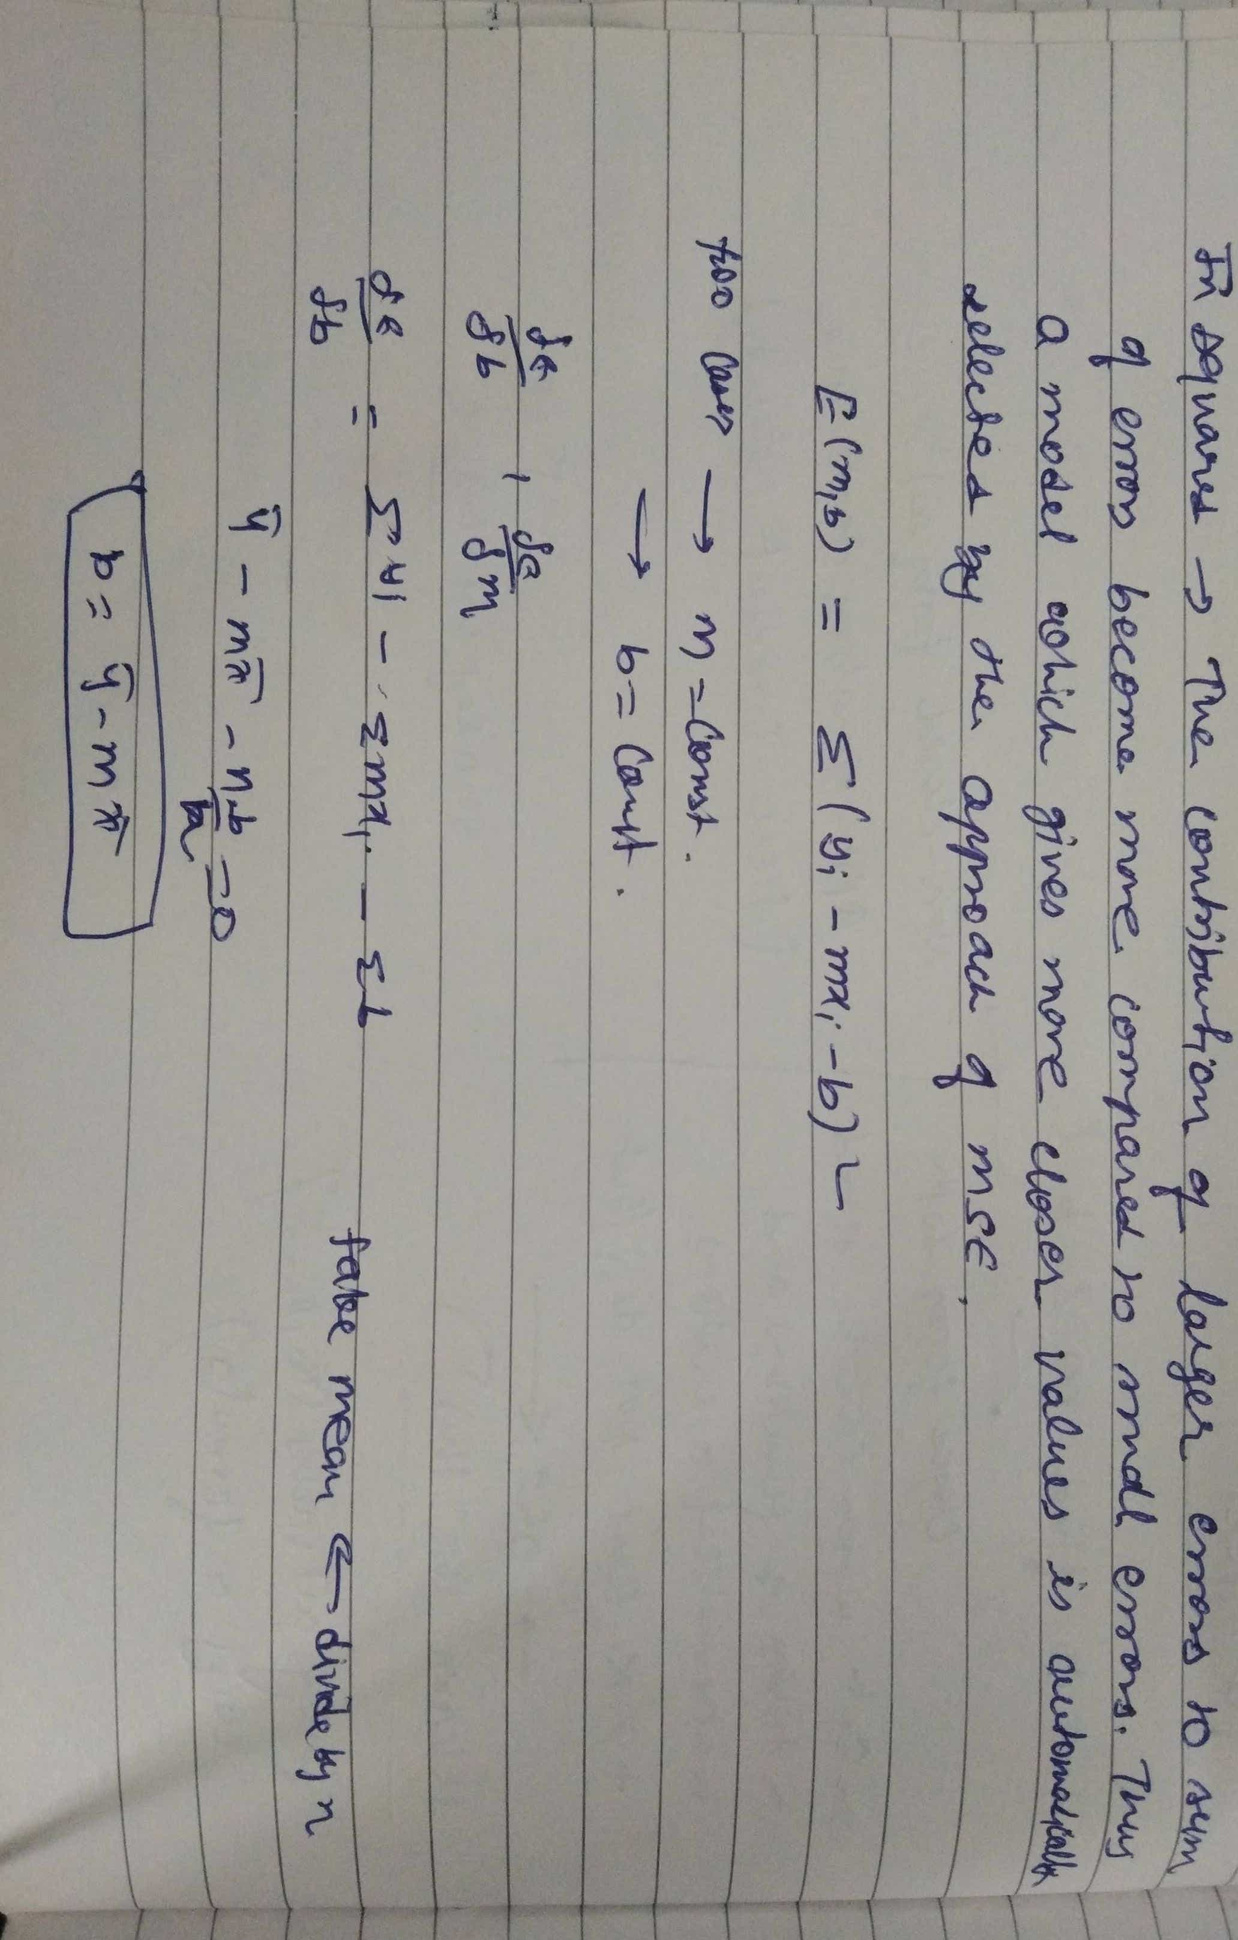 In squares → The contribution of larger errors to sum
of errors become more compared to small errors. Thus
a model which gives more closer values is automatically
selected by the approach of MSE.
E(m,b) = Σ(yi - mxi - b)²
two cases → m = Const.
→ b = Const.
δE/δb , δE/δm
δE/δb = Σyi - Σmxi - Σb
take mean ⇐ divide by n
ȳ - mx̄ - nb/n = 0
b = ȳ - mx̄